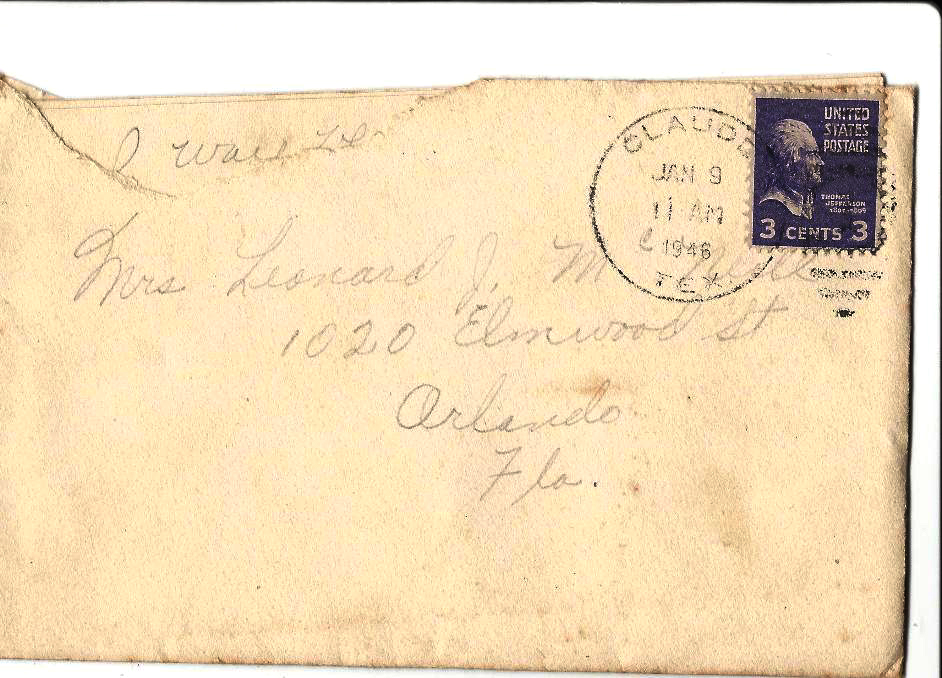 CLAUDE
JAN 9
11 AM
1946
TEX
UNITED
STATES
POSTAGE
THOMAS
JEFFERSON
1801-1809
3 CENTS 3
Mrs Leonard J.
1020 Elmwood St
Orlando
Fla.